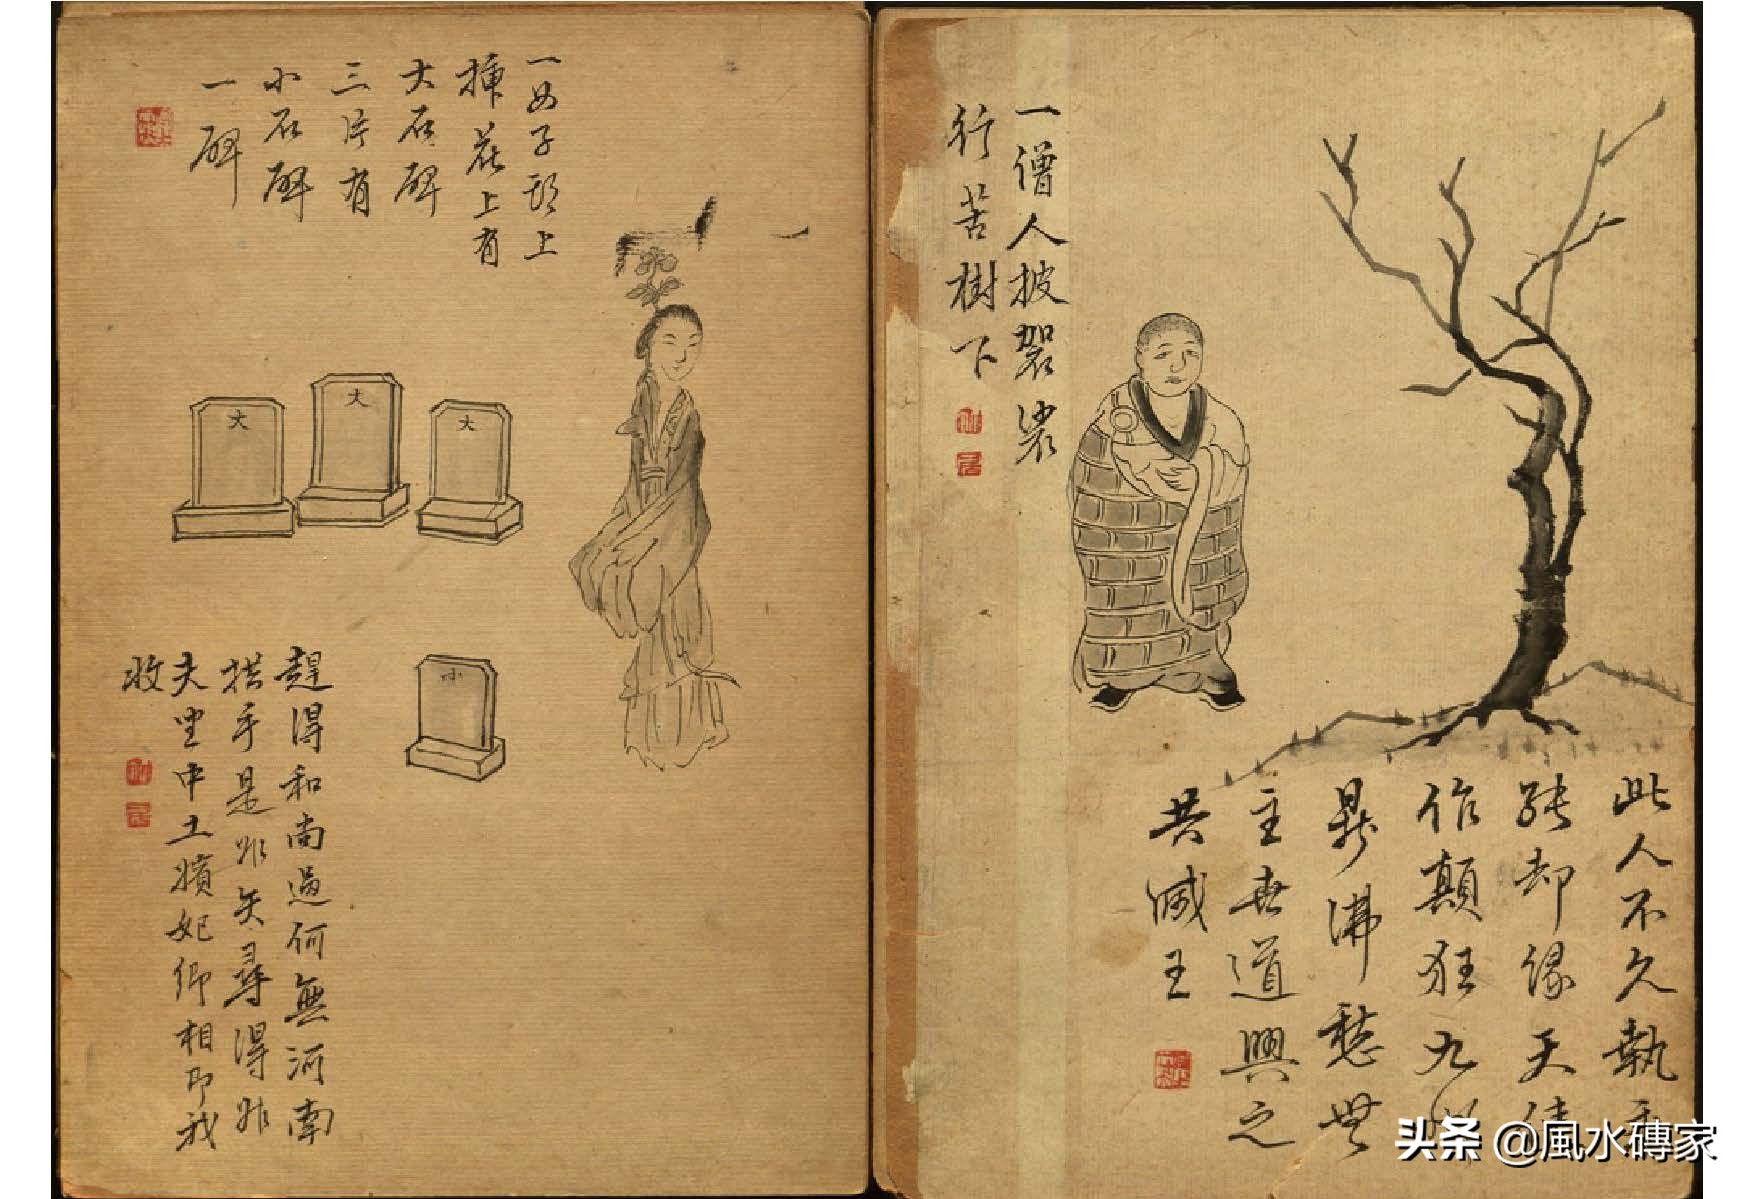 一僧人披袈裟
行苦樹下
此人不久執
能却緣天
作顛狂九
鼎沸愁無
主無道興之
共滅王
一女子頭上
揷花上有
大石碑
三片有
小石碑
一碑
大
大
大
小
趕得和尚過何無河南
拱手是非矣尋得非
夫坐中土嬪妃御相印我
收
头条 @風水磚家